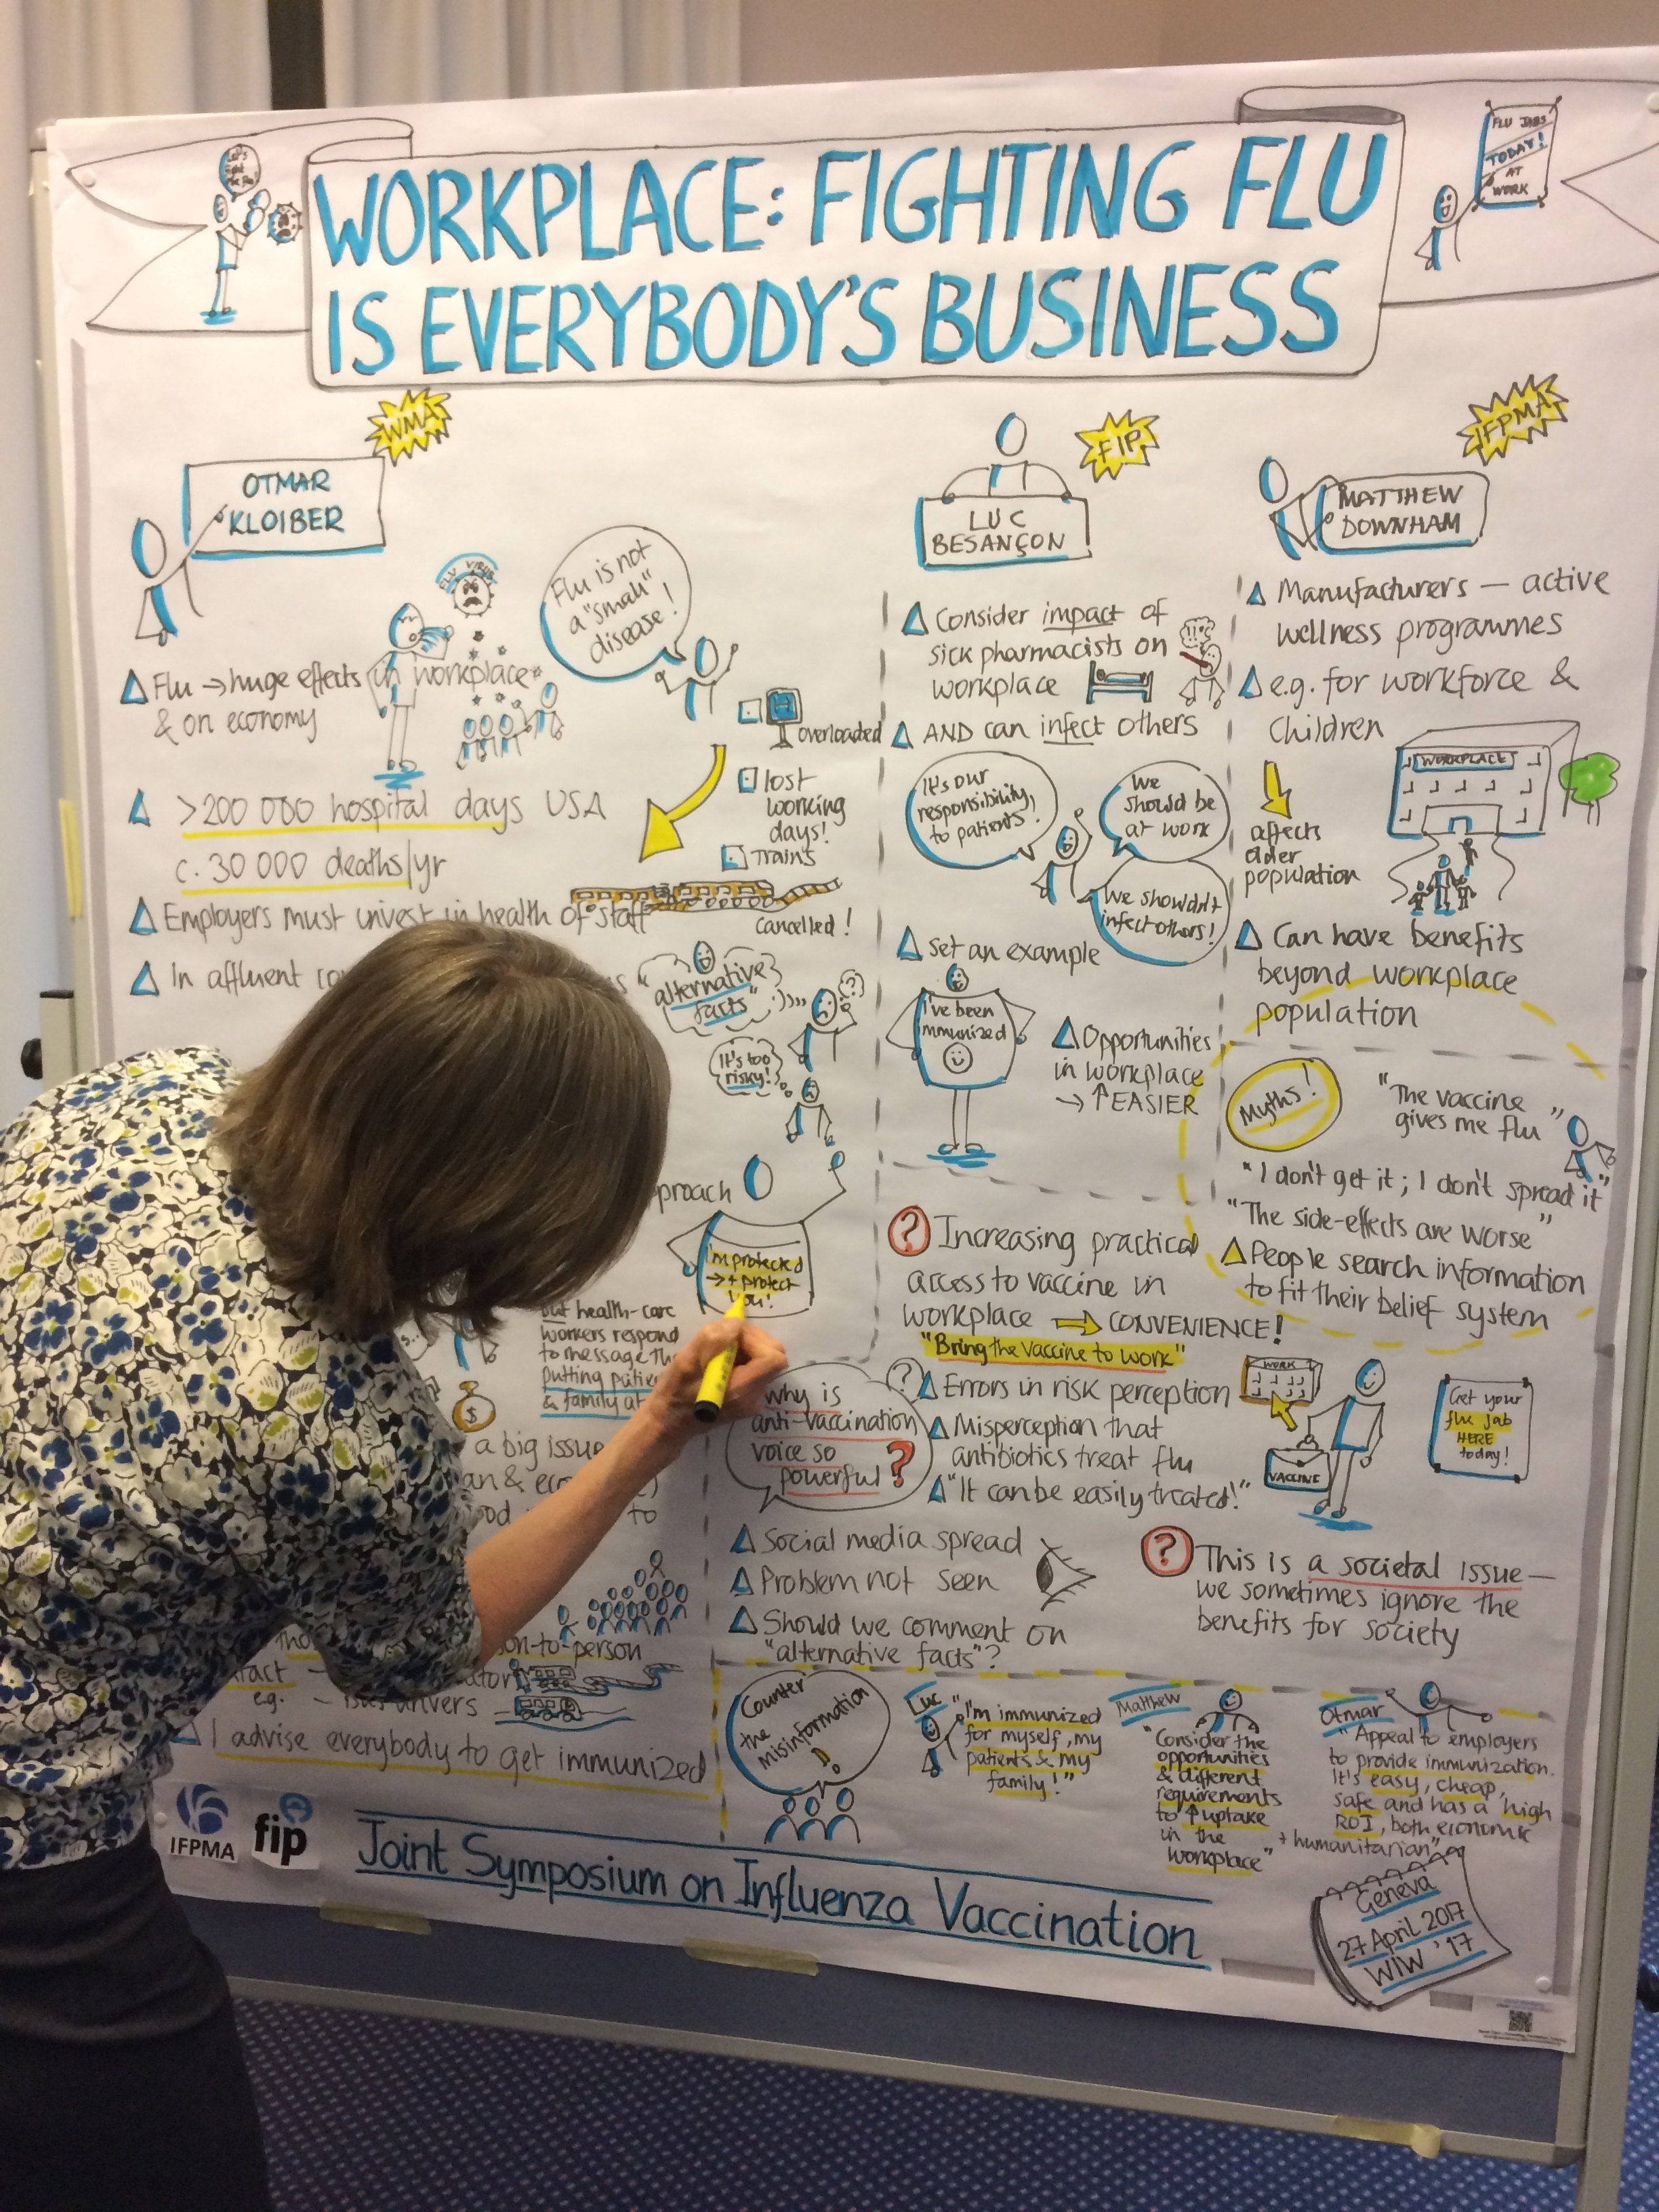 WORKPLACE: FIGHTING FLU
IS EVERYBODY'S BUSINESS
Let's
FLU JABS
TODAY!
AT
WORK
WMA
OTMAR
KLOIBER
FLU VIRUS
Flu is not
a "small"
disease!
Flu → huge effects in workplace
& on economy
overloaded
lost
working
days!
Trains
cancelled!
>200 000 hospital days USA
c. 30 000 deaths/yr
Employers must invest in health of staff
In affluent
"alternative
facts"
??
It's too
risky!
proach
I'm protected
→ + protect
you!
but health-care
workers respond
to message
putting
& family at
$
a big issue
an &
to
on-to-person
e.g. –
drivers
I advise everybody to get immunized
FIP
LUC
BESANÇON
Consider impact of
sick pharmacists on
workplace
AND can infect others
It's our
responsibility
to patients!
We
should be
at work
We shouldn't
infect others!
Set an example
I've been
immunized
Opportunities
in workplace
→ ↑EASIER
IFPMA
MATTHEW
DOWNHAM
Manufacturers — active
wellness programmes
e.g. for workforce &
children
WORKPLACE
affects
older
population
Can have benefits
beyond workplace
population
Myths!
"The vaccine
gives me flu"
"I don't get it; I don't spread it"
"The side-effects are worse"
People search information
to fit their belief system
? Increasing practical
access to vaccine in
workplace ⇒ CONVENIENCE!
"Bring the vaccine to work"
WORK
VACCINE
Get your
flu jab
HERE
today!
Why is
anti-vaccination
voice so
powerful?
?
Errors in risk perception
Misperception that
antibiotics treat flu
"It can be easily treated!"
Social media spread
Problem not seen
Should we comment on
"alternative facts"?
? This is a societal issue —
we sometimes ignore the
benefits for society
Counter
the
misinformation
!
Luc
"I'm immunized
for myself, my
patients & my
family!"
Matthew
"Consider the
opportunities
& different
requirements
to ↑ uptake
in the
workplace"
Otmar
"Appeal to employers
to provide immunization.
It's easy, cheap,
safe and has a high
ROI, both economic
+ humanitarian"
IFPMA
fip
Joint Symposium on Influenza Vaccination
Geneva
27 April 2017
WIW '17